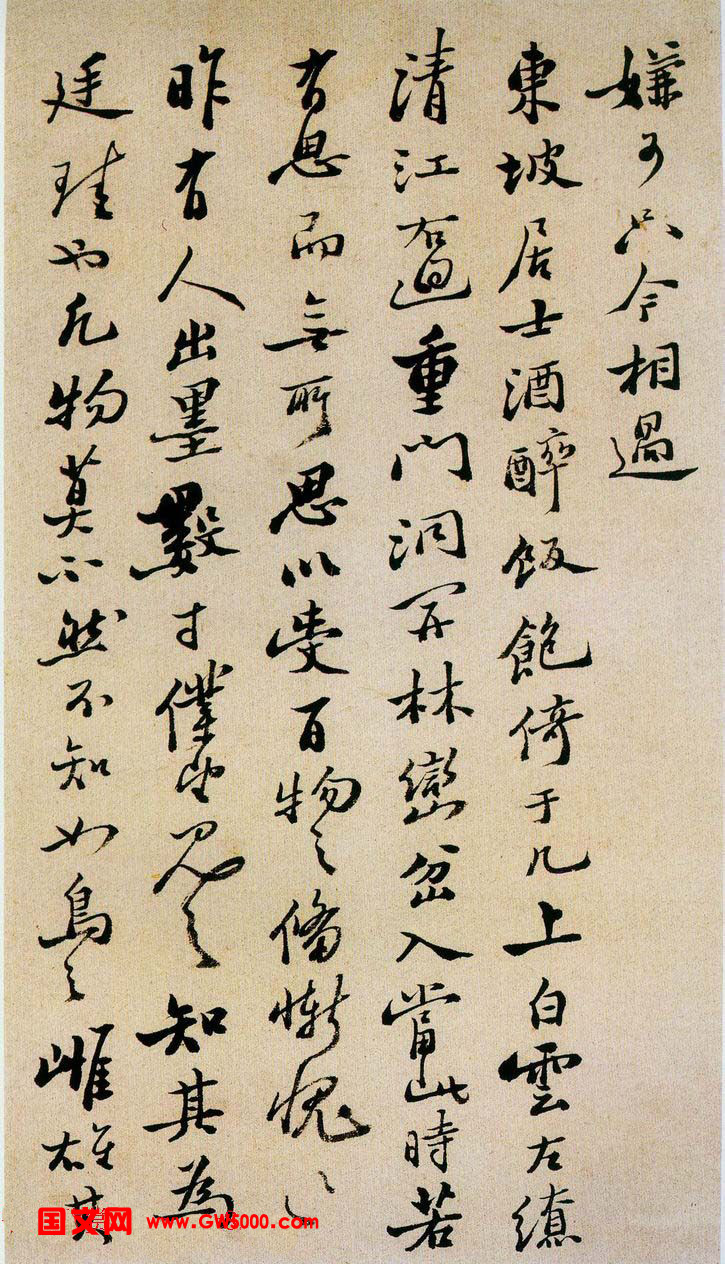 嫌可只今相過
東坡居士酒醉飯飽倚于几上白雲左繚
清江右洄重門洞開林巒岔入當此時若
有思而無所思以受百物之備慚愧〻
昨有人出墨數寸僕望見之知其為
廷珪也凡物莫不然不知如烏之雌雄其
国文网 www.GW5000.com